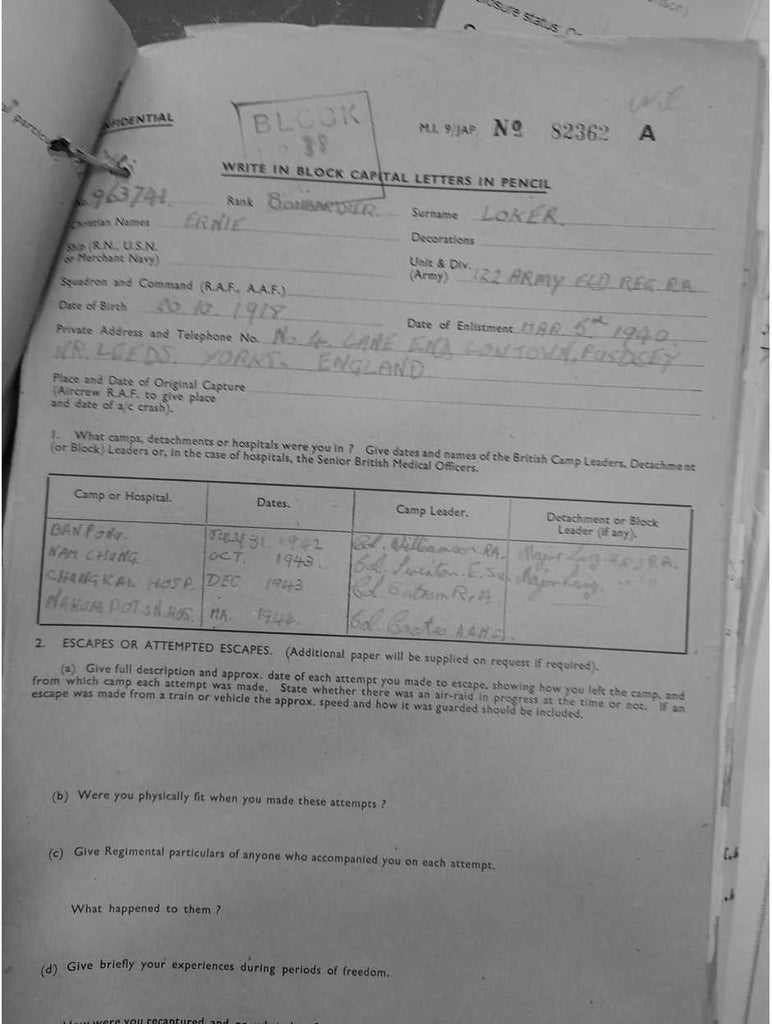 closure status: O
FIDENTIAL
BLOCK
88
M.I. 9/JAP. No 82362 A
WRITE IN BLOCK CAPITAL LETTERS IN PENCIL
No. 963741. Rank BOMBARDIER. Surname LOKER.
Christian Names ERNIE Decorations
Ship (R.N., U.S.N. or Merchant Navy)
Unit & Div. (Army) 122 ARMY FLD REG RA
Squadron and Command (R.A.F., A.A.F.)
Date of Birth 20.10.1918 Date of Enlistment MAR 5th 1940.
Private Address and Telephone No. No 4 LANE END LOWTOWN, PUDSEY
NR. LEEDS. YORKS. ENGLAND.
Place and Date of Original Capture
(Aircrew R.A.F. to give place
and date of a/c crash).
1. What camps, detachments or hospitals were you in ? Give dates and names of the British Camp Leaders, Detachment
(or Block) Leaders or, in the case of hospitals, the Senior British Medical Officers.
Camp or Hospital. Dates. Camp Leader. Detachment or Block Leader (if any).
BANPONG. JULY 31. 1942 Col. Williamson RA. Major
NAM CHONG OCT. 1943. Col. Major
CHUNGKAI. HOSP. DEC 1943 Col. R.A
NAKOM POTON HOS. MA. 1944. Col.
2. ESCAPES OR ATTEMPTED ESCAPES. (Additional paper will be supplied on request if required).
(a) Give full description and approx. date of each attempt you made to escape, showing how you left the camp, and
from which camp each attempt was made. State whether there was an air-raid in progress at the time or not. If an
escape was made from a train or vehicle the approx. speed and how it was guarded should be included.
(b) Were you physically fit when you made these attempts ?
(c) Give Regimental particulars of anyone who accompanied you on each attempt.
What happened to them ?
(d) Give briefly your experiences during periods of freedom.
were you recaptured and